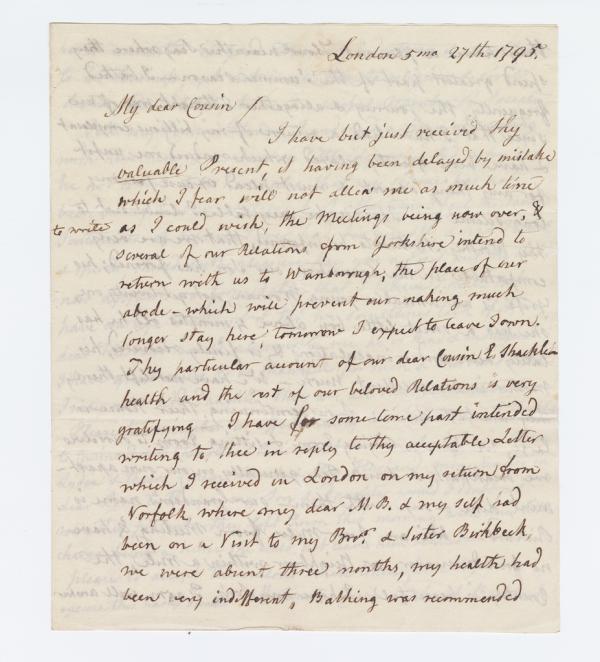 London 5mo 27th 1795.
My dear Cousin /
I have but just received thy
valuable Present, it having been delayed by mistake
which I fear will not allow me as much time
to write as I could wish, the Meetings being now over, &
several of our Relations from Yorkshire intend to
return with us to Wanborough, the place of our
abode - which will prevent our making much
longer stay here, tomorrow I expect to leave Town.
Thy particular account of our dear Cousin E. Shackleton
health and the rest of our beloved Relations is very
gratifying I have for some time past intended
writing to thee in reply to thy acceptable Letter
which I received in London on my return from
Norfolk, where my dear M.B. & my self had
been on a Visit to my Bror. & Sister Birkbeck,
we were absent three months, my health had
been very indifferent, Bathing was recommended